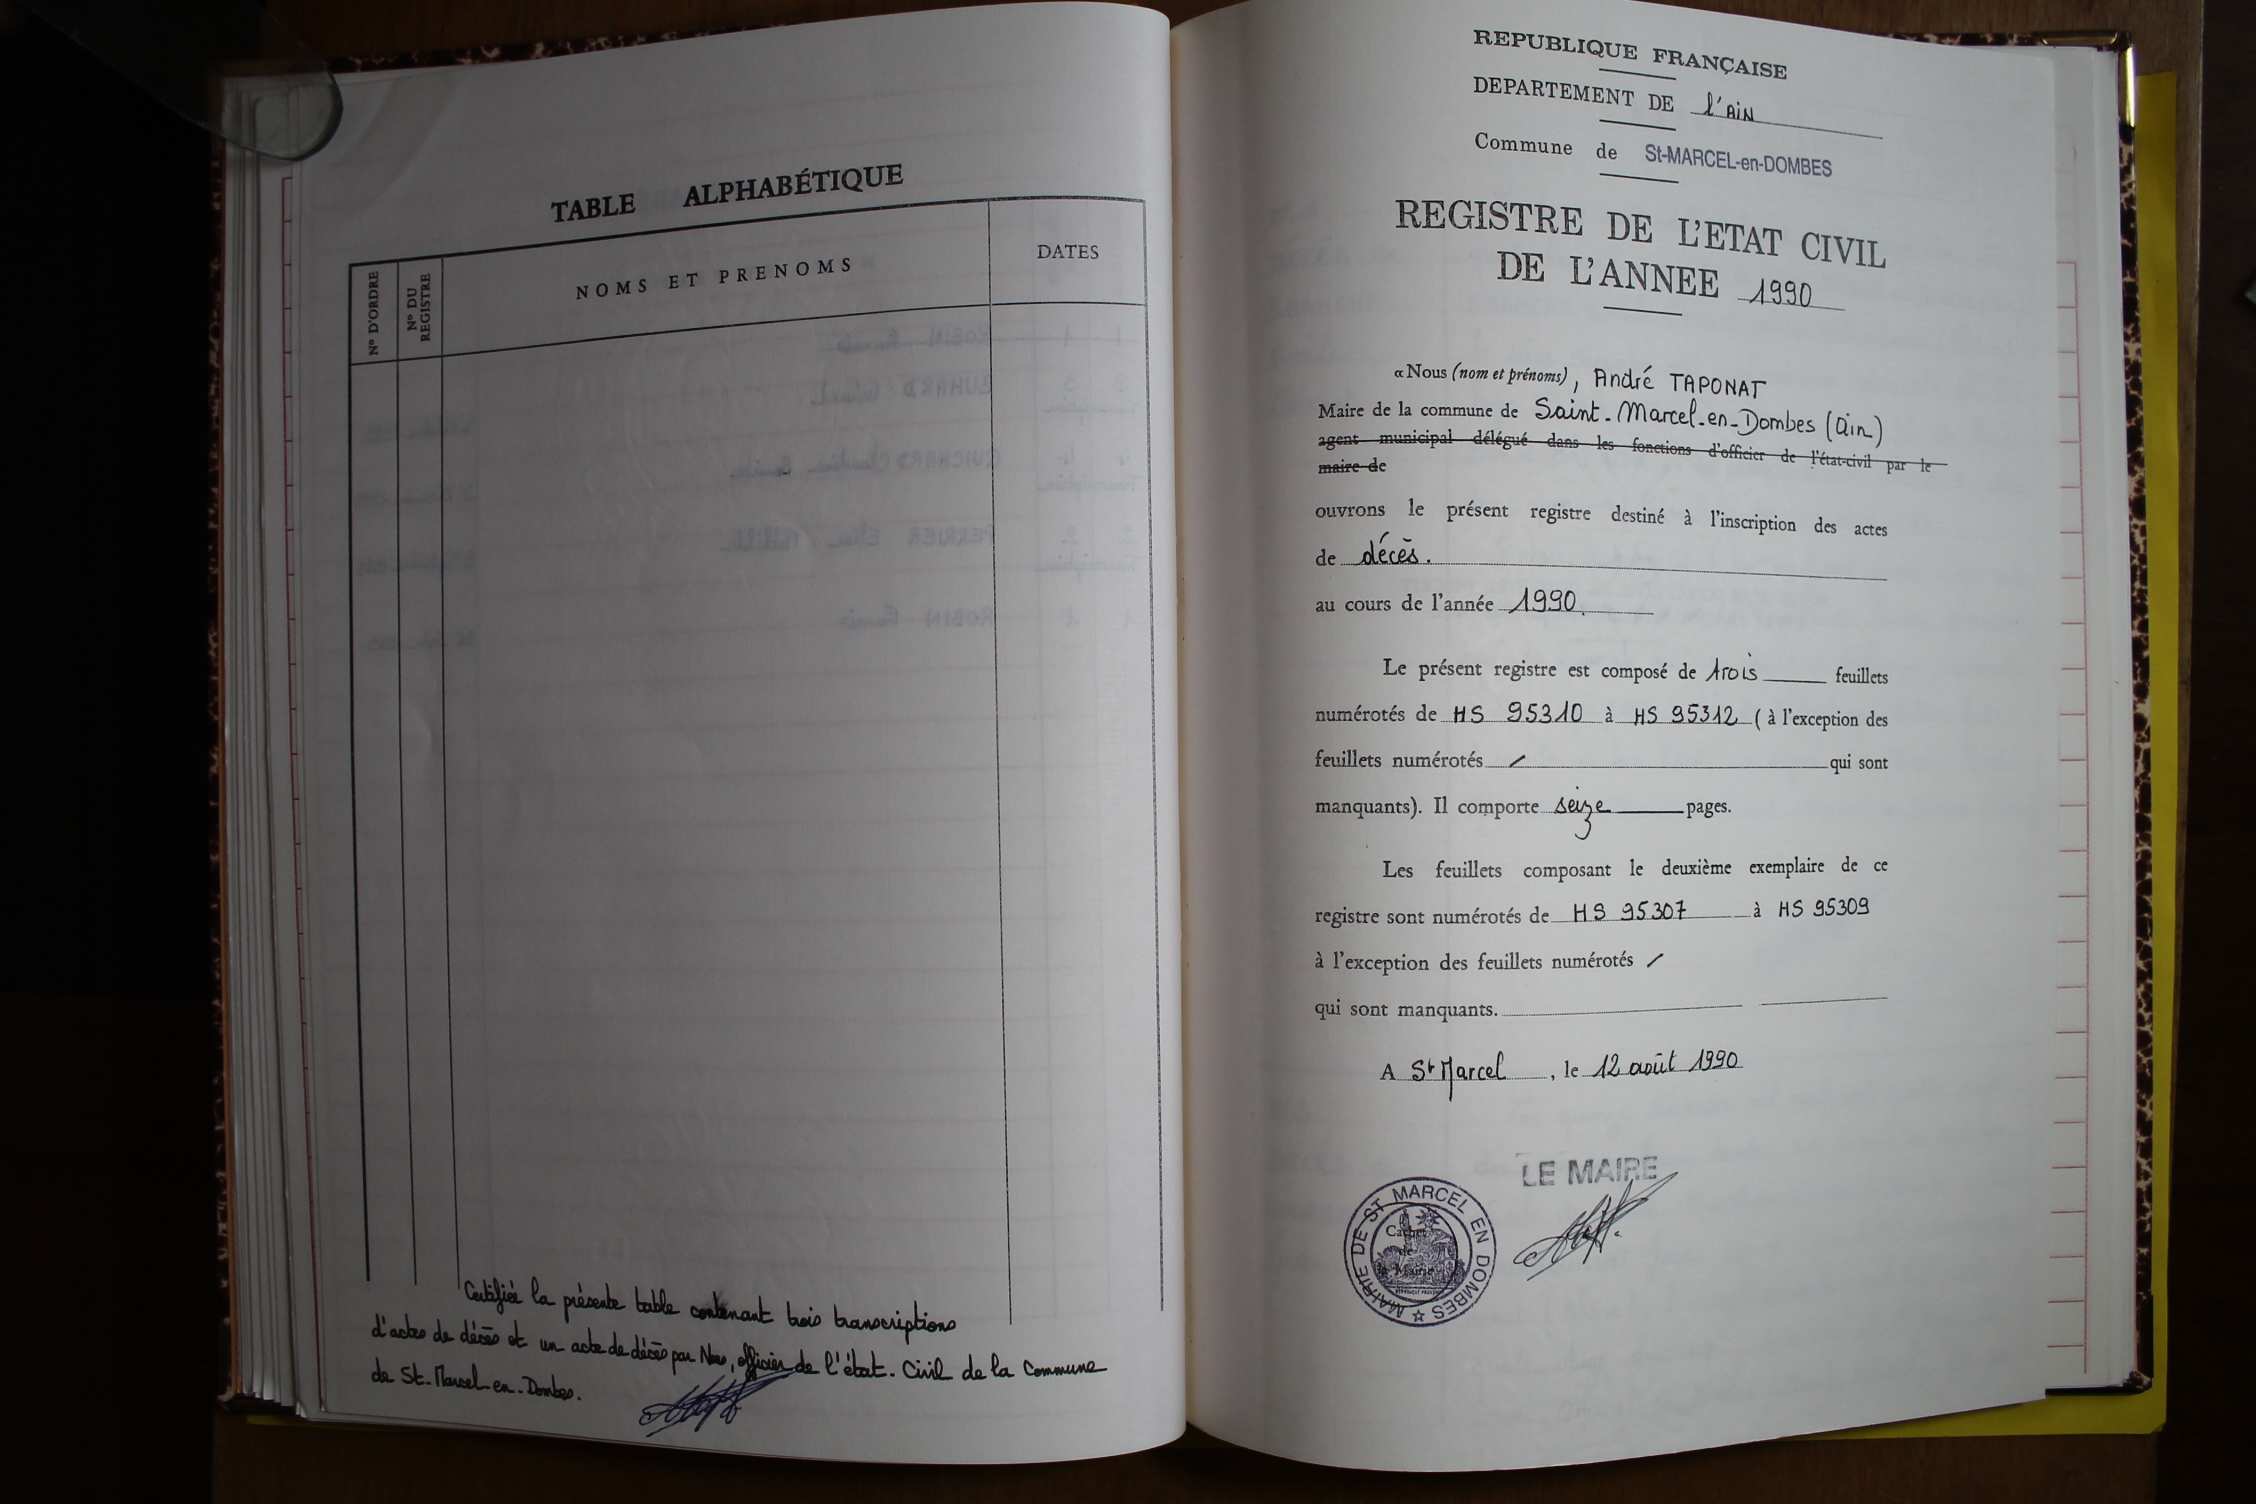 TABLE ALPHABÉTIQUE
Nº D'ORDRE
Nº DU REGISTRE
NOMS ET PRENOMS
DATES
Certifiée la présente table contenant trois transcriptions
d'actes de décès et un acte de décès par Nous, officier de l'état-Civil de la Commune
de St-Marcel-en-Dombes.
REPUBLIQUE FRANÇAISE
DEPARTEMENT DE l'AIN
Commune de St-MARCEL-en-DOMBES
REGISTRE DE L'ETAT CIVIL
DE L'ANNEE 1990
« Nous (nom et prénoms), André TAPONAT
Maire de la commune de Saint-Marcel-en-Dombes (Ain)
agent municipal délégué dans les fonctions d'officier de l'état-civil par le
maire de
ouvrons le présent registre destiné à l'inscription des actes
de décès.
au cours de l'année 1990.
Le présent registre est composé de trois feuillets
numérotés de HS 95310 à HS 95312 (à l'exception des
feuillets numérotés / qui sont
manquants). Il comporte seize pages.
Les feuillets composant le deuxième exemplaire de ce
registre sont numérotés de HS 95307 à HS 95309
à l'exception des feuillets numérotés /
qui sont manquants.
A St Marcel, le 12 août 1990
LE MAIRE
MAIRIE DE ST MARCEL EN DOMBES
Cachet
de
la Mairie